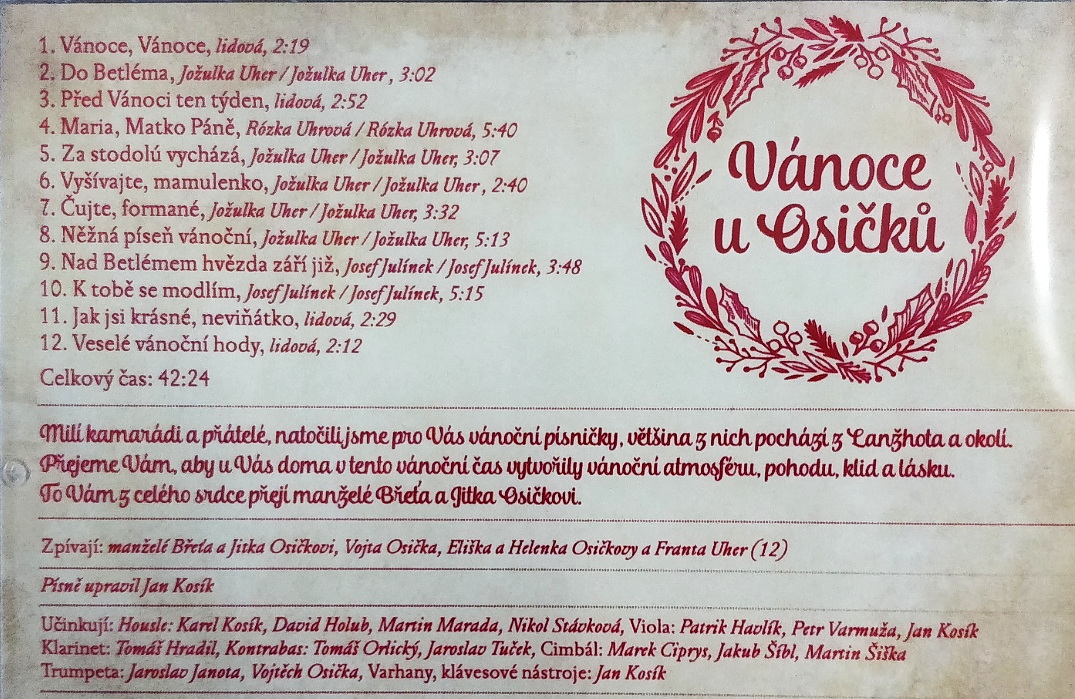 1. Vánoce, Vánoce, lidová, 2:19
2. Do Betléma, Jožulka Uher / Jožulka Uher , 3:02
3. Před Vánoci ten týden, lidová, 2:52
4. Maria, Matko Páně, Rózka Uhrová / Rózka Uhrová, 5:40
5. Za stodolú vycházá, Jožulka Uher / Jožulka Uher, 3:07
6. Vyšívajte, mamulenko, Jožulka Uher / Jožulka Uher , 2:40
7. Čujte, formané, Jožulka Uher / Jožulka Uher, 3:32
8. Něžná píseň vánoční, Jožulka Uher / Jožulka Uher, 5:13
9. Nad Betlémem hvězda září již, Josef Julínek / Josef Julínek, 3:48
10. K tobě se modlím, Josef Julínek / Josef Julínek, 5:15
11. Jak jsi krásné, neviňátko, lidová, 2:29
12. Veselé vánoční hody, lidová, 2:12
Celkový čas: 42:24
Vánoce
u Osičků
Milí kamarádi a přátelé, natočili jsme pro Vás vánoční písničky, většina z nich pochází z Lanžhota a okolí.
Přejeme Vám, aby u Vás doma v tento vánoční čas vytvořily vánoční atmosféru, pohodu, klid a lásku.
To Vám z celého srdce přejí manželé Břeťa a Jitka Osičkovi.
Zpívají: manželé Břeťa a Jitka Osičkovi, Vojta Osička, Eliška a Helenka Osičkovy a Franta Uher (12)
Písně upravil Jan Kosík
Učinkují: Housle: Karel Kosík, David Holub, Martin Marada, Nikol Stávková, Viola: Patrik Havlík, Petr Varmuža, Jan Kosík
Klarinet: Tomáš Hradil, Kontrabas: Tomáš Orlický, Jaroslav Tuček, Cimbál: Marek Ciprys, Jakub Šíbl, Martin Šiška
Trumpeta: Jaroslav Janota, Vojtěch Osička, Varhany, klávesové nástroje: Jan Kosík